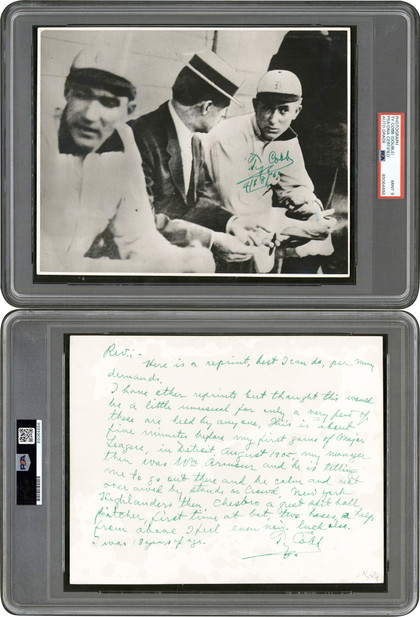 PHOTOGRAPH
TY COBB (DOUBLE)
PSA/DNA CERTIFIED
AUTO GRADE
MINT 9
Ty Cobb
PSA
Rev:-
Here is a reprint, best I can do, per many
demands.
I have other reprints but thought this would
be a little unusual for only a very few of
these are held by anyone, This is about
five minutes before my first game of Major
League, in Detroit August 1905, my manager
then was Wm Armour and he is telling
me to go out there and be calm and not
over awed by stands or Crowd. New York
Highlanders then. Chesbro a great spit ball
pitcher, first time at bat two bases, a help
from above I feel luck also.
I was 18 years of age.
Ty Cobb